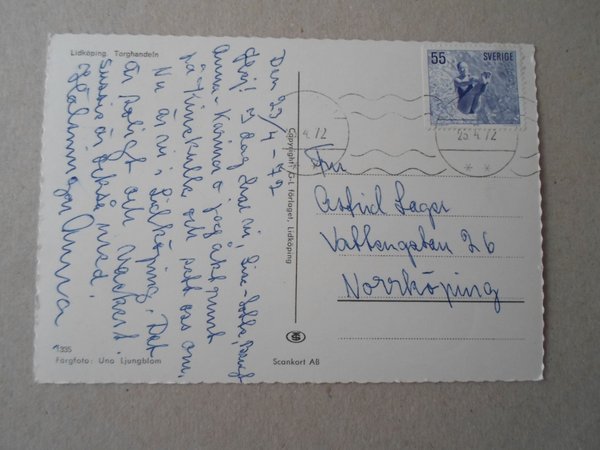 Lidköping. Torghandeln
Den 23/4 -72
Hej! I dag har vi, Lise-Lotte,
Anna-Karina o jag åkt runt
på Kinnekulle och sett oss om.
Nu är vi i Lidköping. Det
är soligt och vackert.
också med.
Hälsningar Anna
1335
Färgfoto: Uno Ljungblom
Copyright: G-L förlaget, Lidköping
Scankort AB
55 SVERIGE
4.72
25.4.72
Fru
Astrid Lager
Vattengatan 26
Norrköping